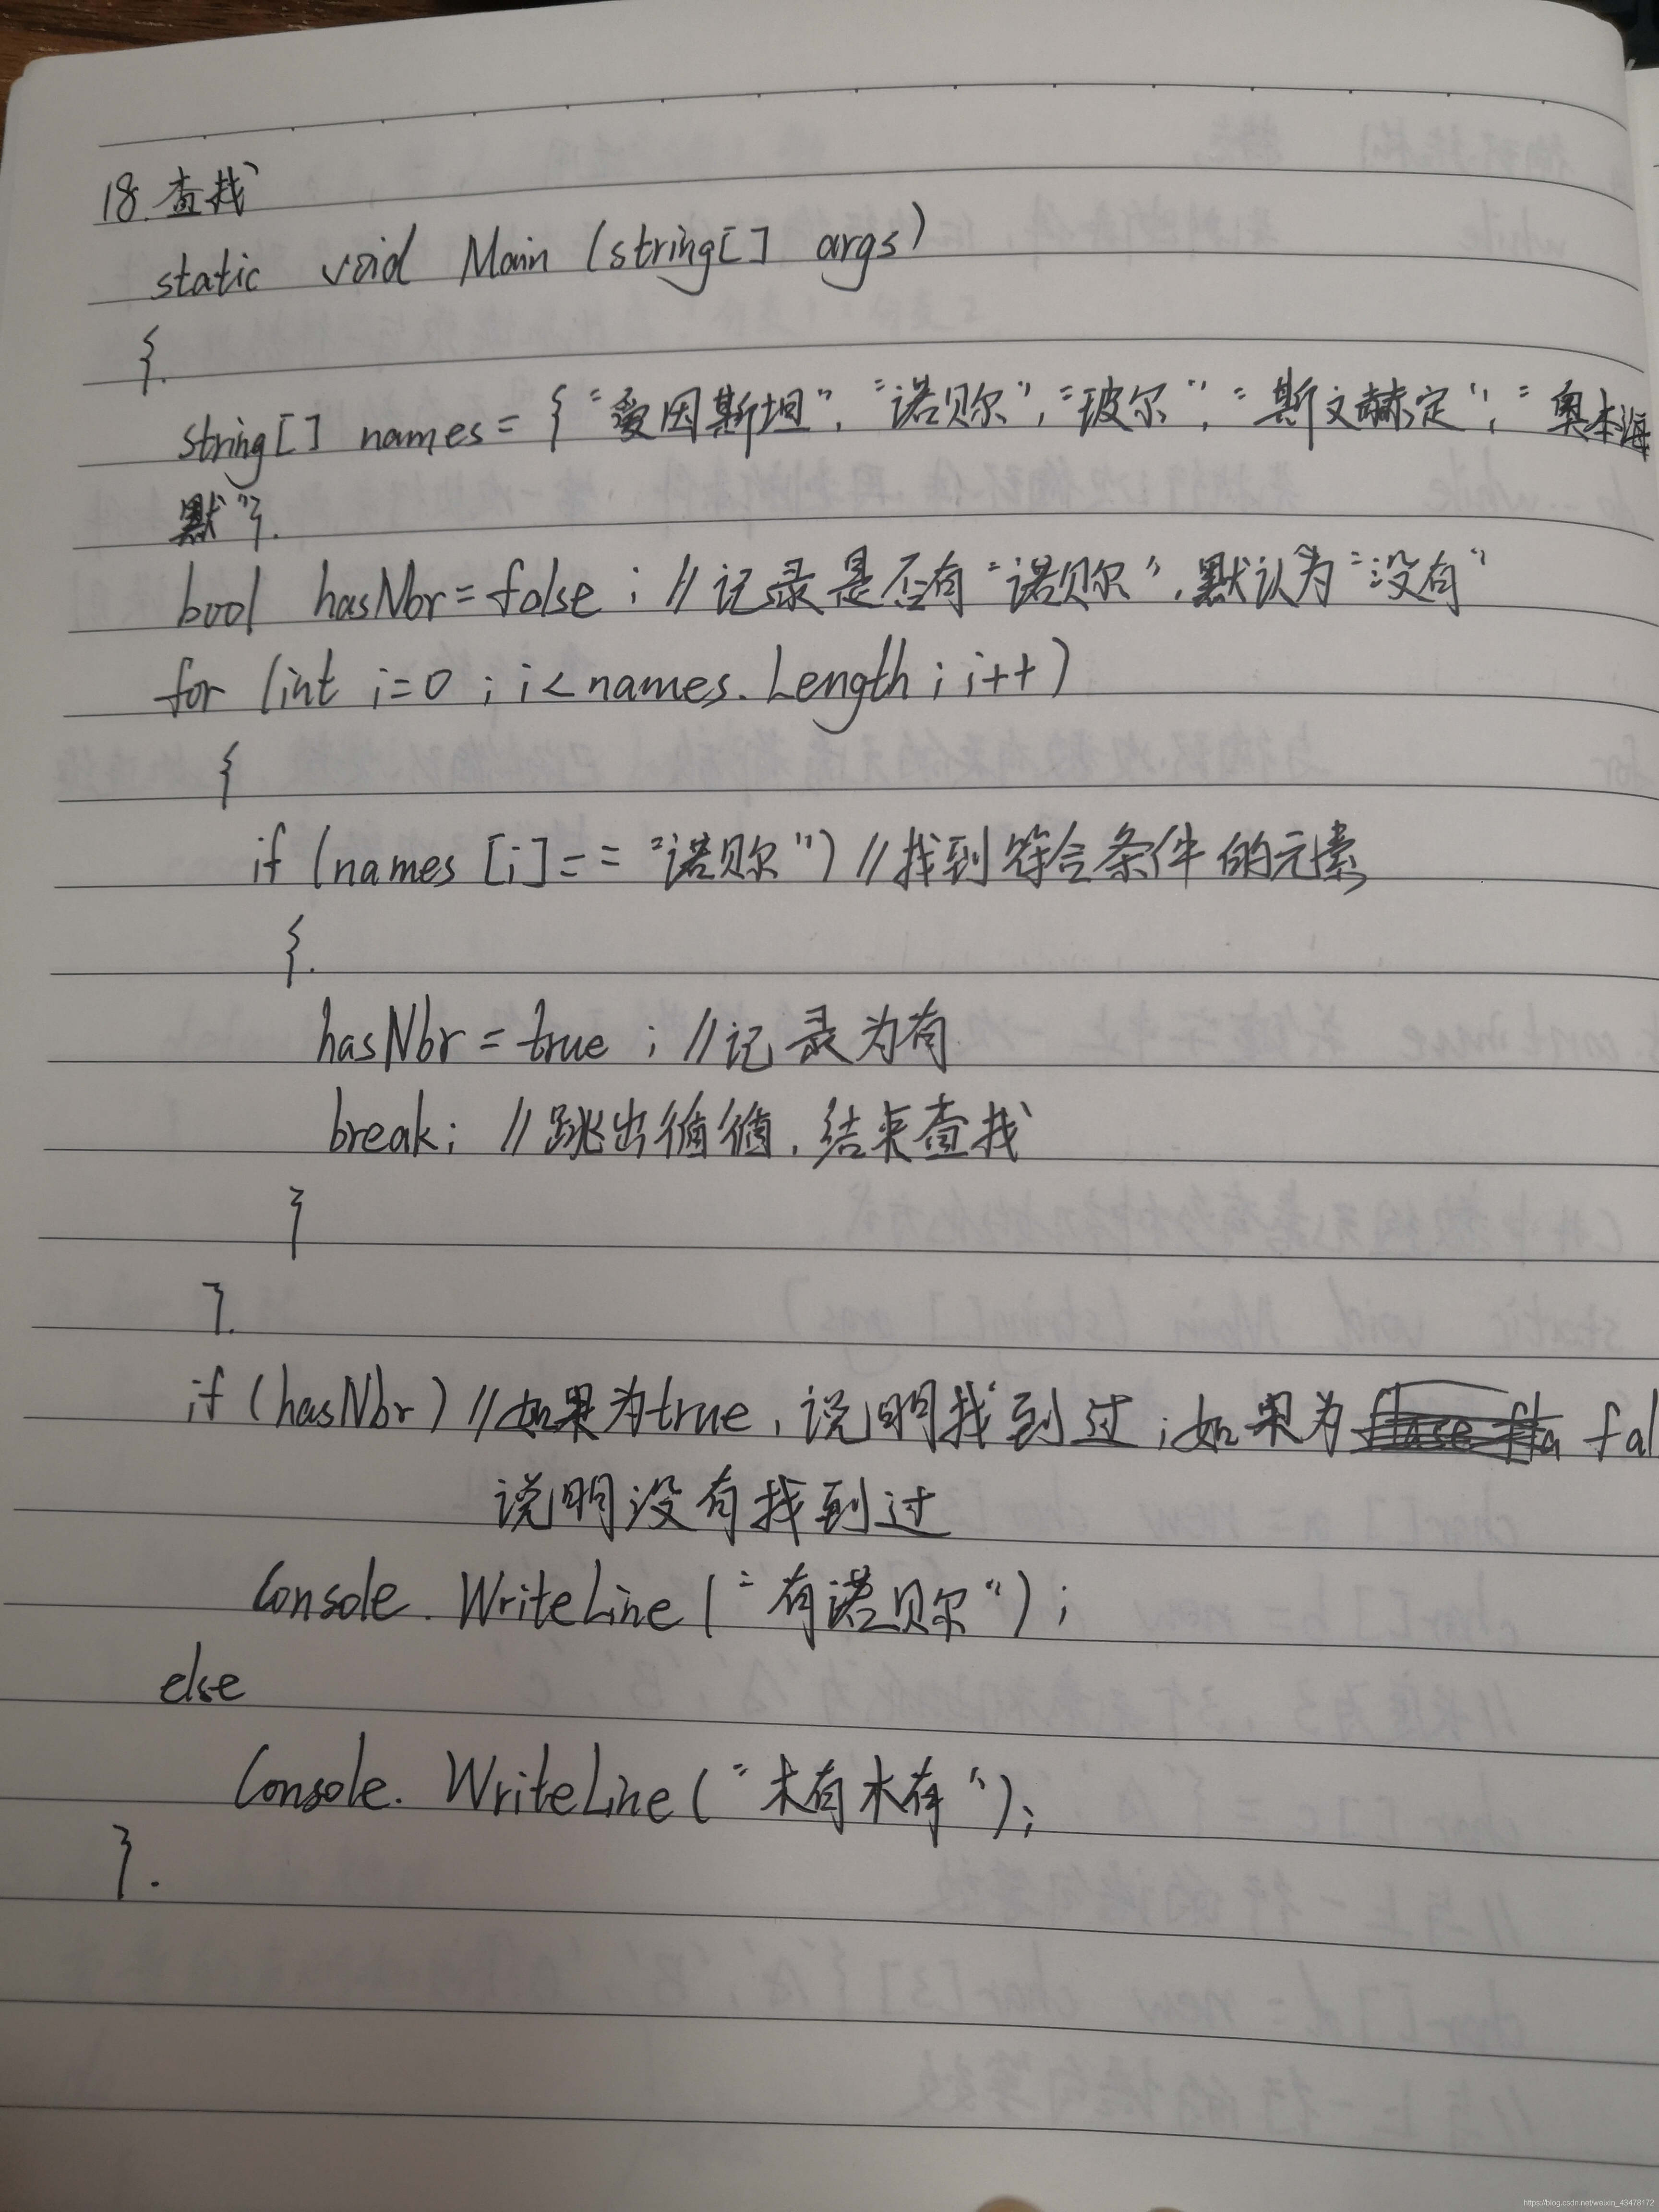 18. 查找
static void Main (string[] args)
{.
string[] names = {"爱因斯坦", "诺贝尔", "玻尔", "斯文赫定", "奥本海
默"}.
bool hasNbr = false ; //记录是否有"诺贝尔", 默认为"没有"
for (int i=0 ; i<names.Length ; i++)
{
if (names [i]== "诺贝尔") //找到符合条件的元素
{.
hasNbr = true ; //记录为有
break; //跳出循循, 结束查找
}
}.
if (hasNbr) //如果为true, 说明找到过; 如果为 fal
说明没有找到过
Console. WriteLine ("有诺贝尔");
else
Console. WriteLine ("木有木有");
}.
https://blog.csdn.net/weixin_43478172